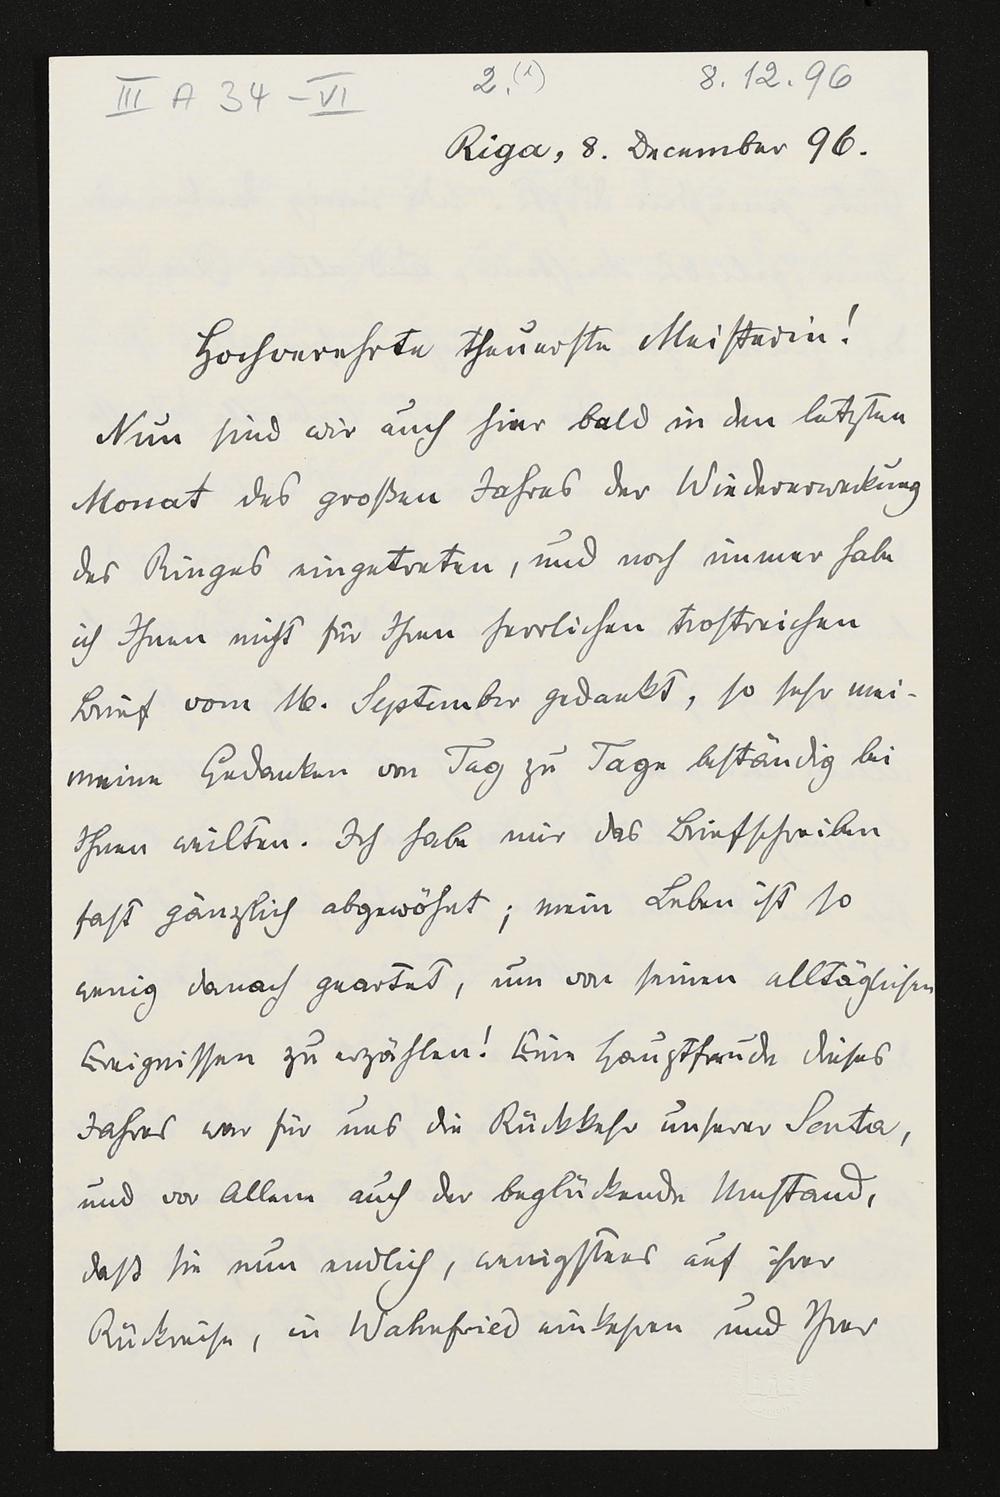 III A 34 – VI 2.(1) 8.12.96
Riga, 8. December 96.
Hochverehrte theuerste Meisterin!
Nun sind wir auch hier bald in den letzten
Monat des großen Jahres der Wiedererweckung
des Ringes eingetreten, und noch immer habe
ich Ihnen nicht für Ihren herrlichen trostreichen
Brief vom 16. September gedankt, so sehr mei-
meine Gedanken von Tag zu Tage beständig bei
Ihnen weilten. Ich habe mir das Briefschreiben
fast gänzlich abgewöhnt; mein Leben ist so
wenig danach geartet, um von seinen alltäglichen
Ereignissen zu erzählen! Eine Hauptfreude dieses
Jahres war für uns die Rückkehr unserer Senta,
und vor Allem auch der beglückende Umstand,
daß sie nun endlich, wenigstens auf ihrer
Rückreise, in Wahnfried einkehren und Ihrer